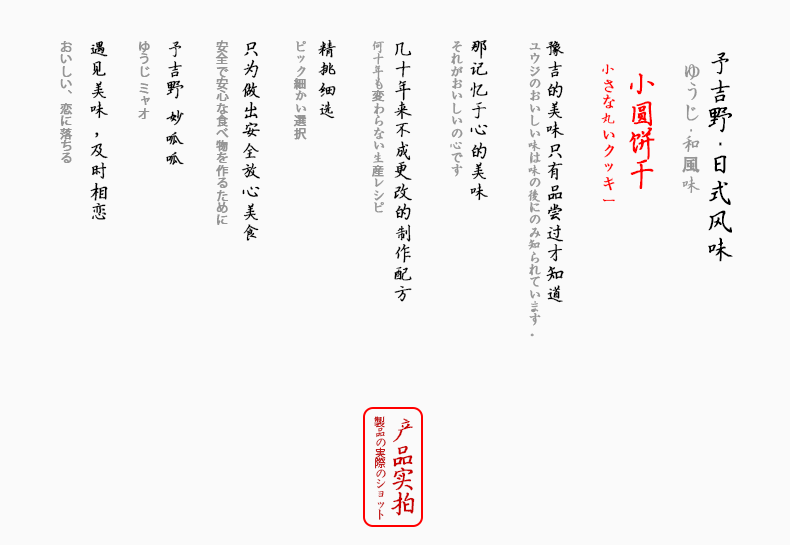 予吉野·日式风味
ゆうじ·和風味
小圆饼干
小さな丸いクッキー
豫吉的美味只有品尝过才知道
ユウジのおいしい味は味の後にのみ知られています.
那记忆于心的美味
それがおいしいの心です
几十年来不成更改的制作配方
何十年も変わらない生産レシピ
精挑细选
ピック細かい選択
只为做出安全放心美食
安全で安心な食べ物を作るために
予吉野 妙呱呱
ゆうじ ミャオ
遇见美味,及时相恋
おいしい、恋に落ちる
产品实拍
製品の実際のショット